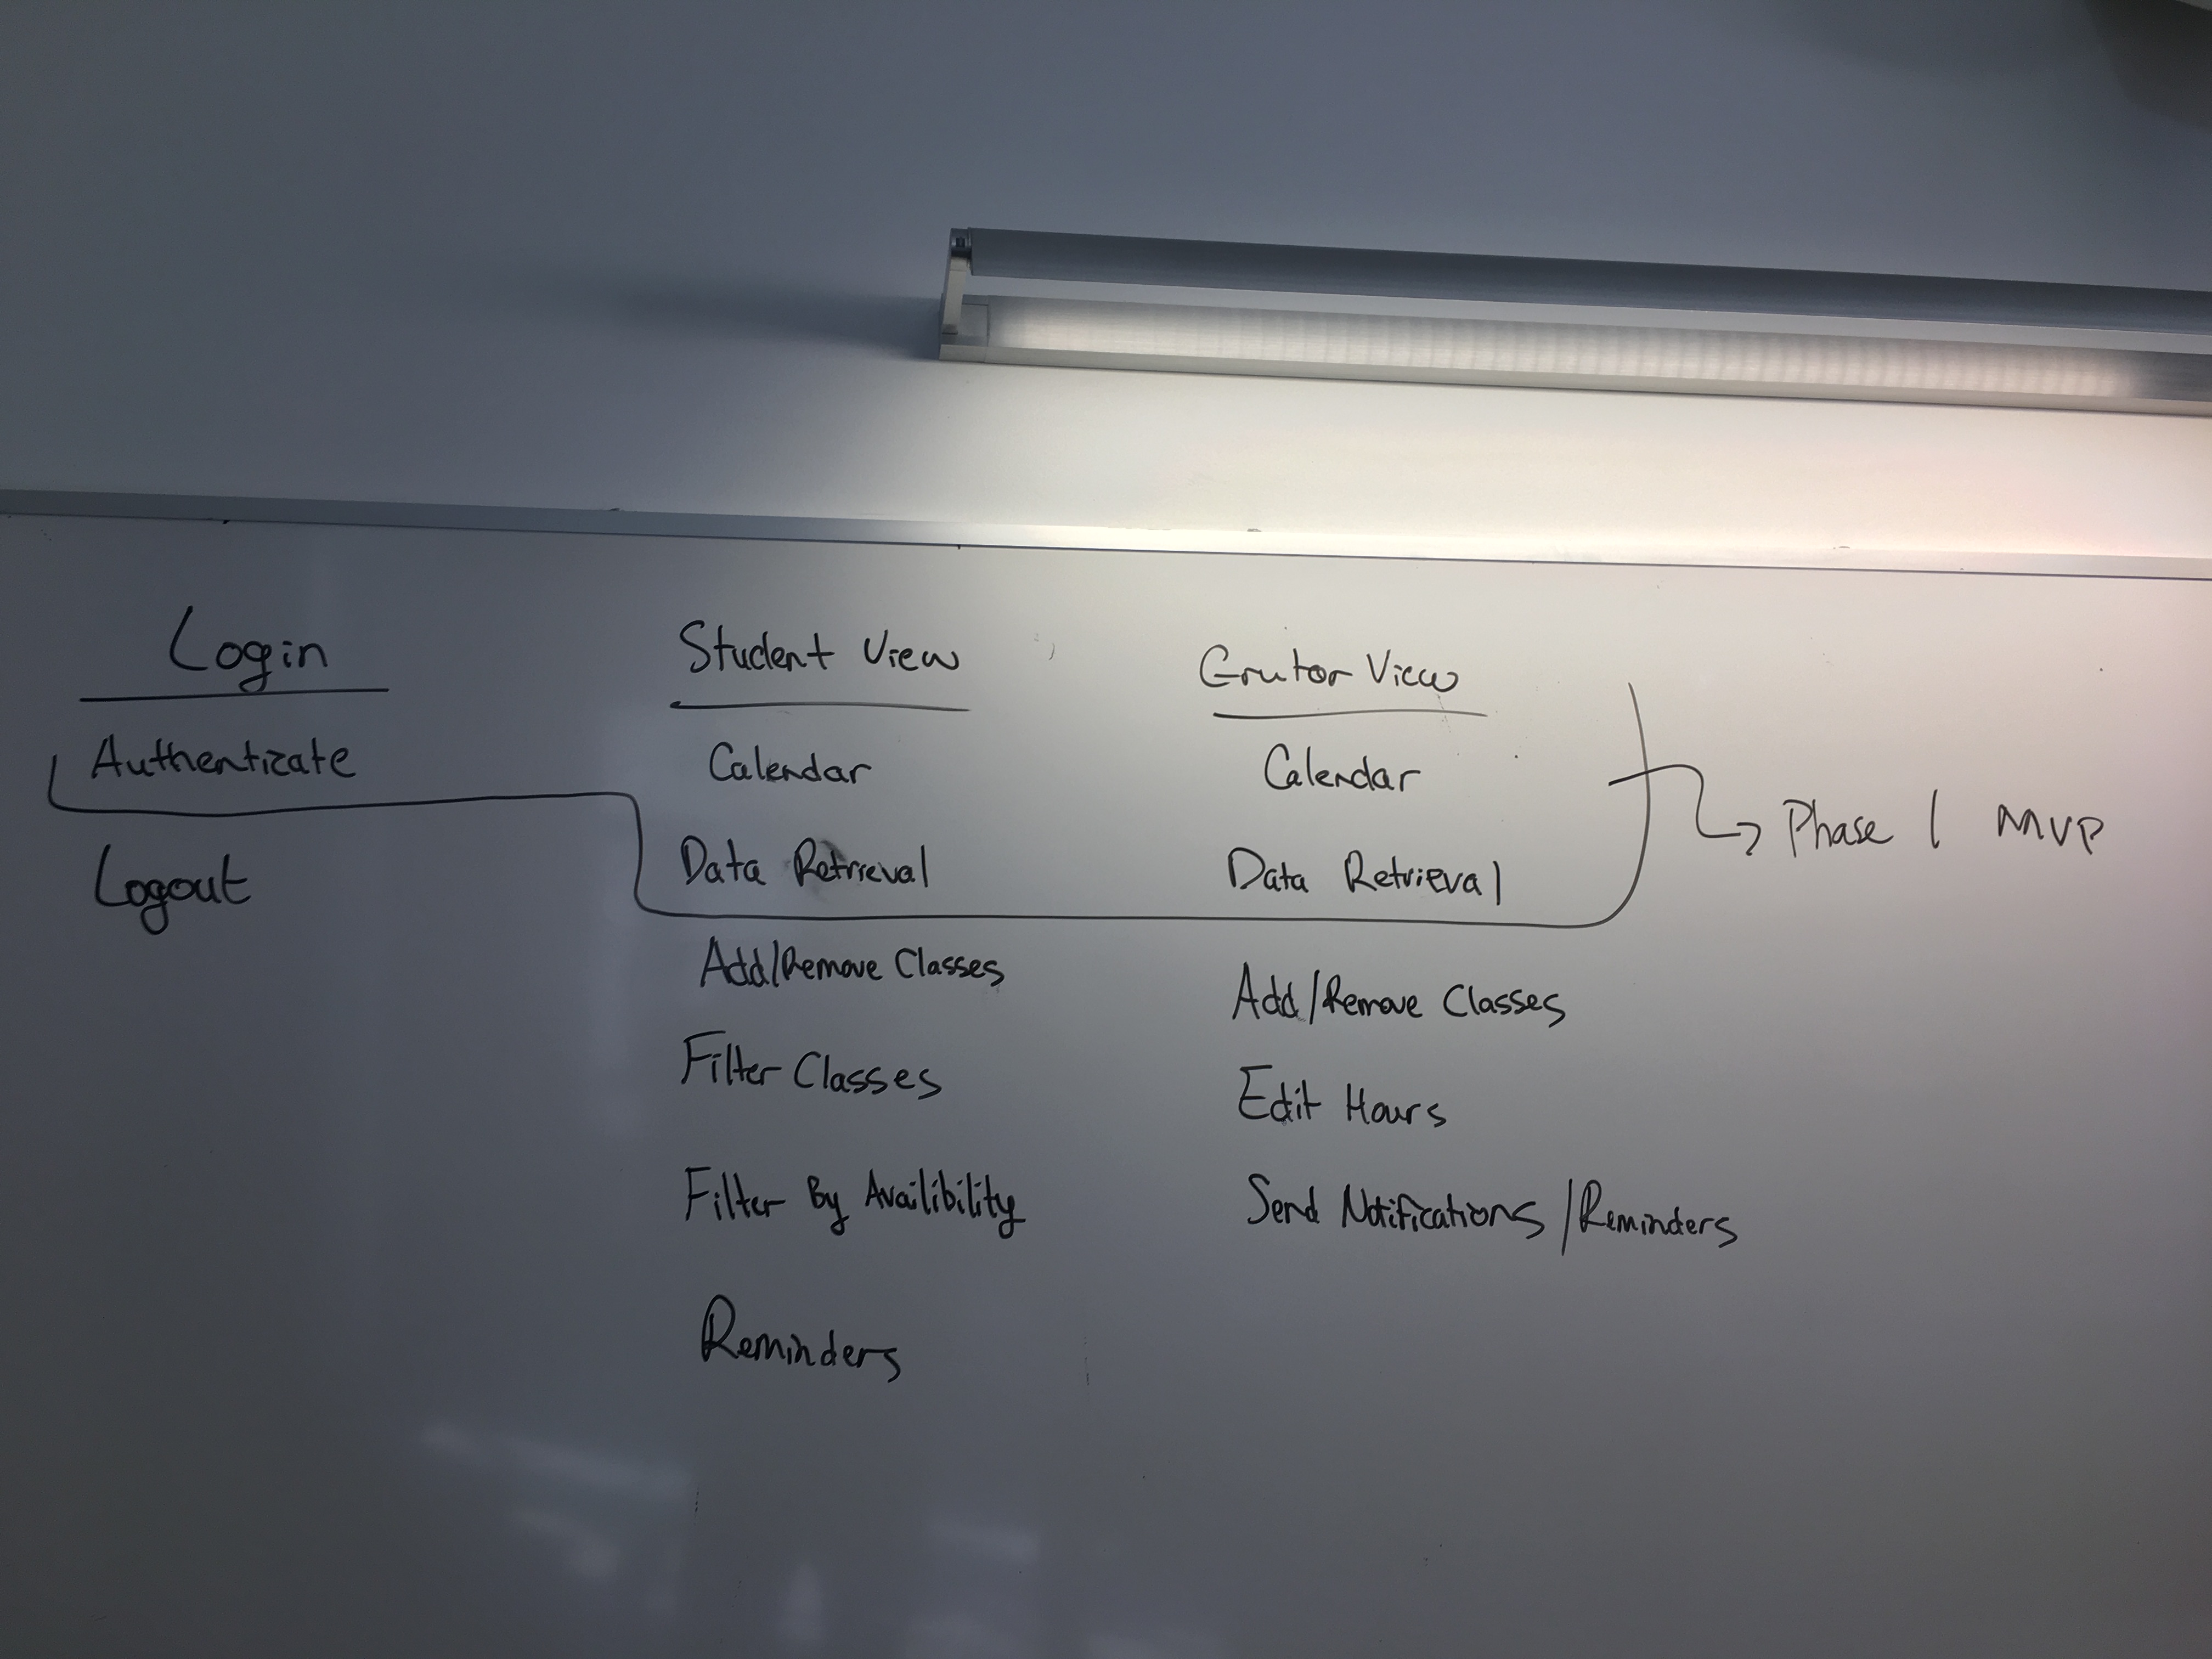 Login
Authenticate
Logout
Student View
Calendar
Data Retrieval
Add/Remove Classes
Filter Classes
Filter By Availibility
Reminders
Grutor View
Calendar
Data Retrieval
Add/Remove Classes
Edit Hours
Send Notifications/Reminders
Phase 1 MVP